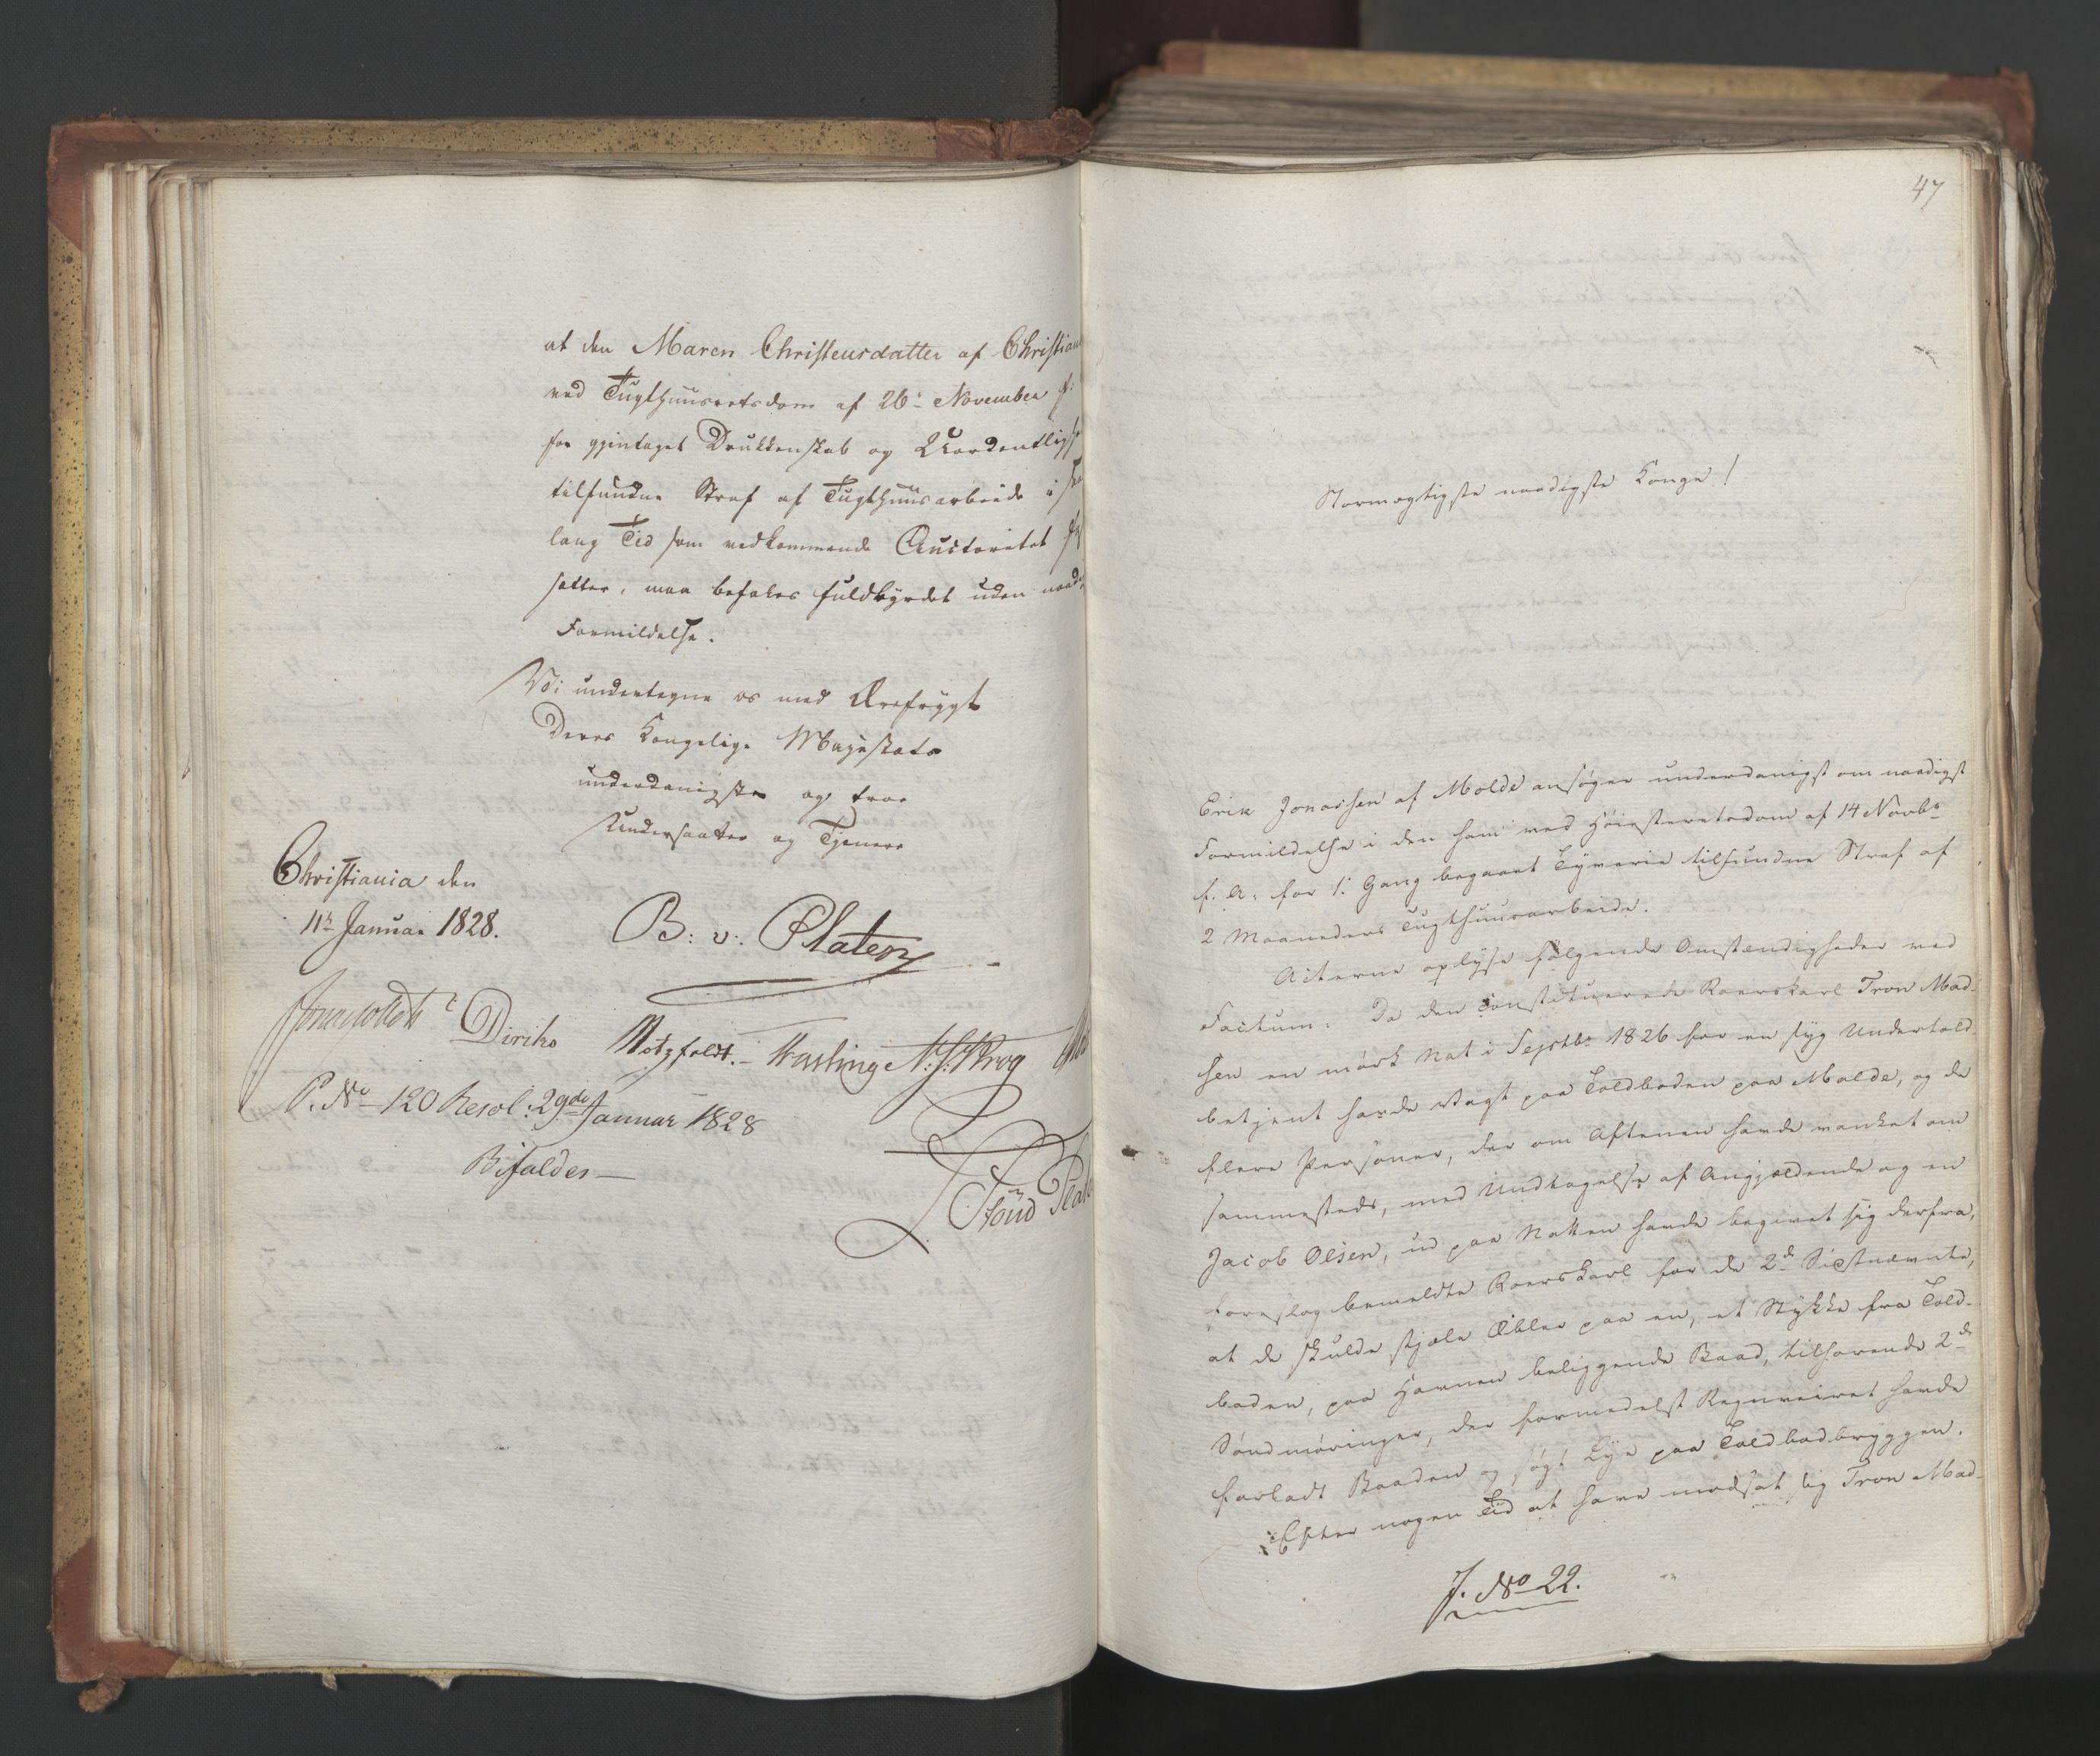 at den Maren Christensdatter af Christian
ved Tugthuusretsdom af 26de November f:
for gjentaget Drukkenskab og Uordentlighe
tilfundne Straf af Tugthuusarbeide i saa
lang Tid som vedkommende Auctoritet fast
sætter, maa befales fuldbyrdet uden naadig
Formildelse.
Vi undertegne os med Ærefrygt
Deres Kongelige Majestæts
underdanigste og troe
Undersaatter og Tjenere
Christiania den
11te Januar 1828.
B: v: Platen
Diriks Motzfeldt. N: J: Krog
P. No 120 Resol: 29de Januar 1828
Bifaldes
47
Stormægtigste naadigste Konge!
Erik Jonassen af Molde ansøger underdanigst om naadigst
Formildelse i den ham ved Høiesteretsdom af 14 Novbr
f. A. for 1. Gang begaaet Tyverie tilfundne Straf af
2 Maaneders Tugthuusarbeide.
Acterne oplyse følgende Omstændigheder ved
Factum: Da den constituerede Roerskarl Tron Mad-
sen en mørk Nat i Septbr 1826 for en syg Undertold
betjent havde Vagt paa Toldboden paa Molde, og da
flere Personer, der om Aftenen havde vanket om
sammesteds, med Undtagelse af Angjældende og en
Jacob Olsen, ud paa Natten havde begivet sig derfra,
foreslog bemeldte Roerskarl for de 2de Sidstnævnte,
at de skulde stjæle Æbler paa en, et Stykke fra Told-
boden, paa Havnen beliggende Baad, tilhørende 2de
Søndmøringer, der formedelst Regnveiret havde
forladt Baaden og søgt Lye paa Toldbodbryggen.
Efter nogen Tid at have modsat sig Tron Mad-
J. No 22.